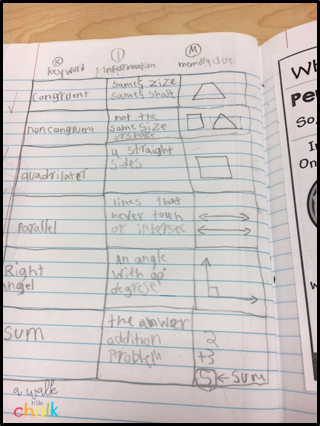 K I M
Keyword information memory clue
Congruent same size
same shape
noncongruent not the
same size
or shape
quadrilater 4 straight
sides
Parallel lines that
never touch
or intersec
Right
Angel An angle
with 90°
degrese
Sum the answer
addition
Problem
2
+3
5 ← Sum
a walk
in the
chalk
Wh
Pe
So
I
On